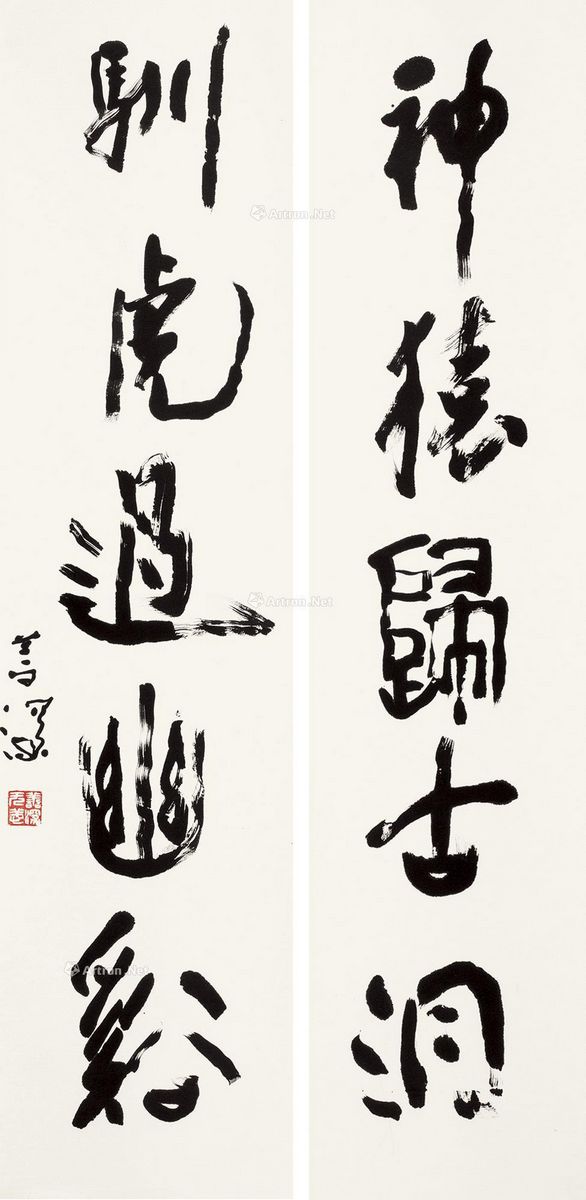 神猿歸古洞
馴虎過幽谿
Artron.Net
Artron.Net
Artron.Net